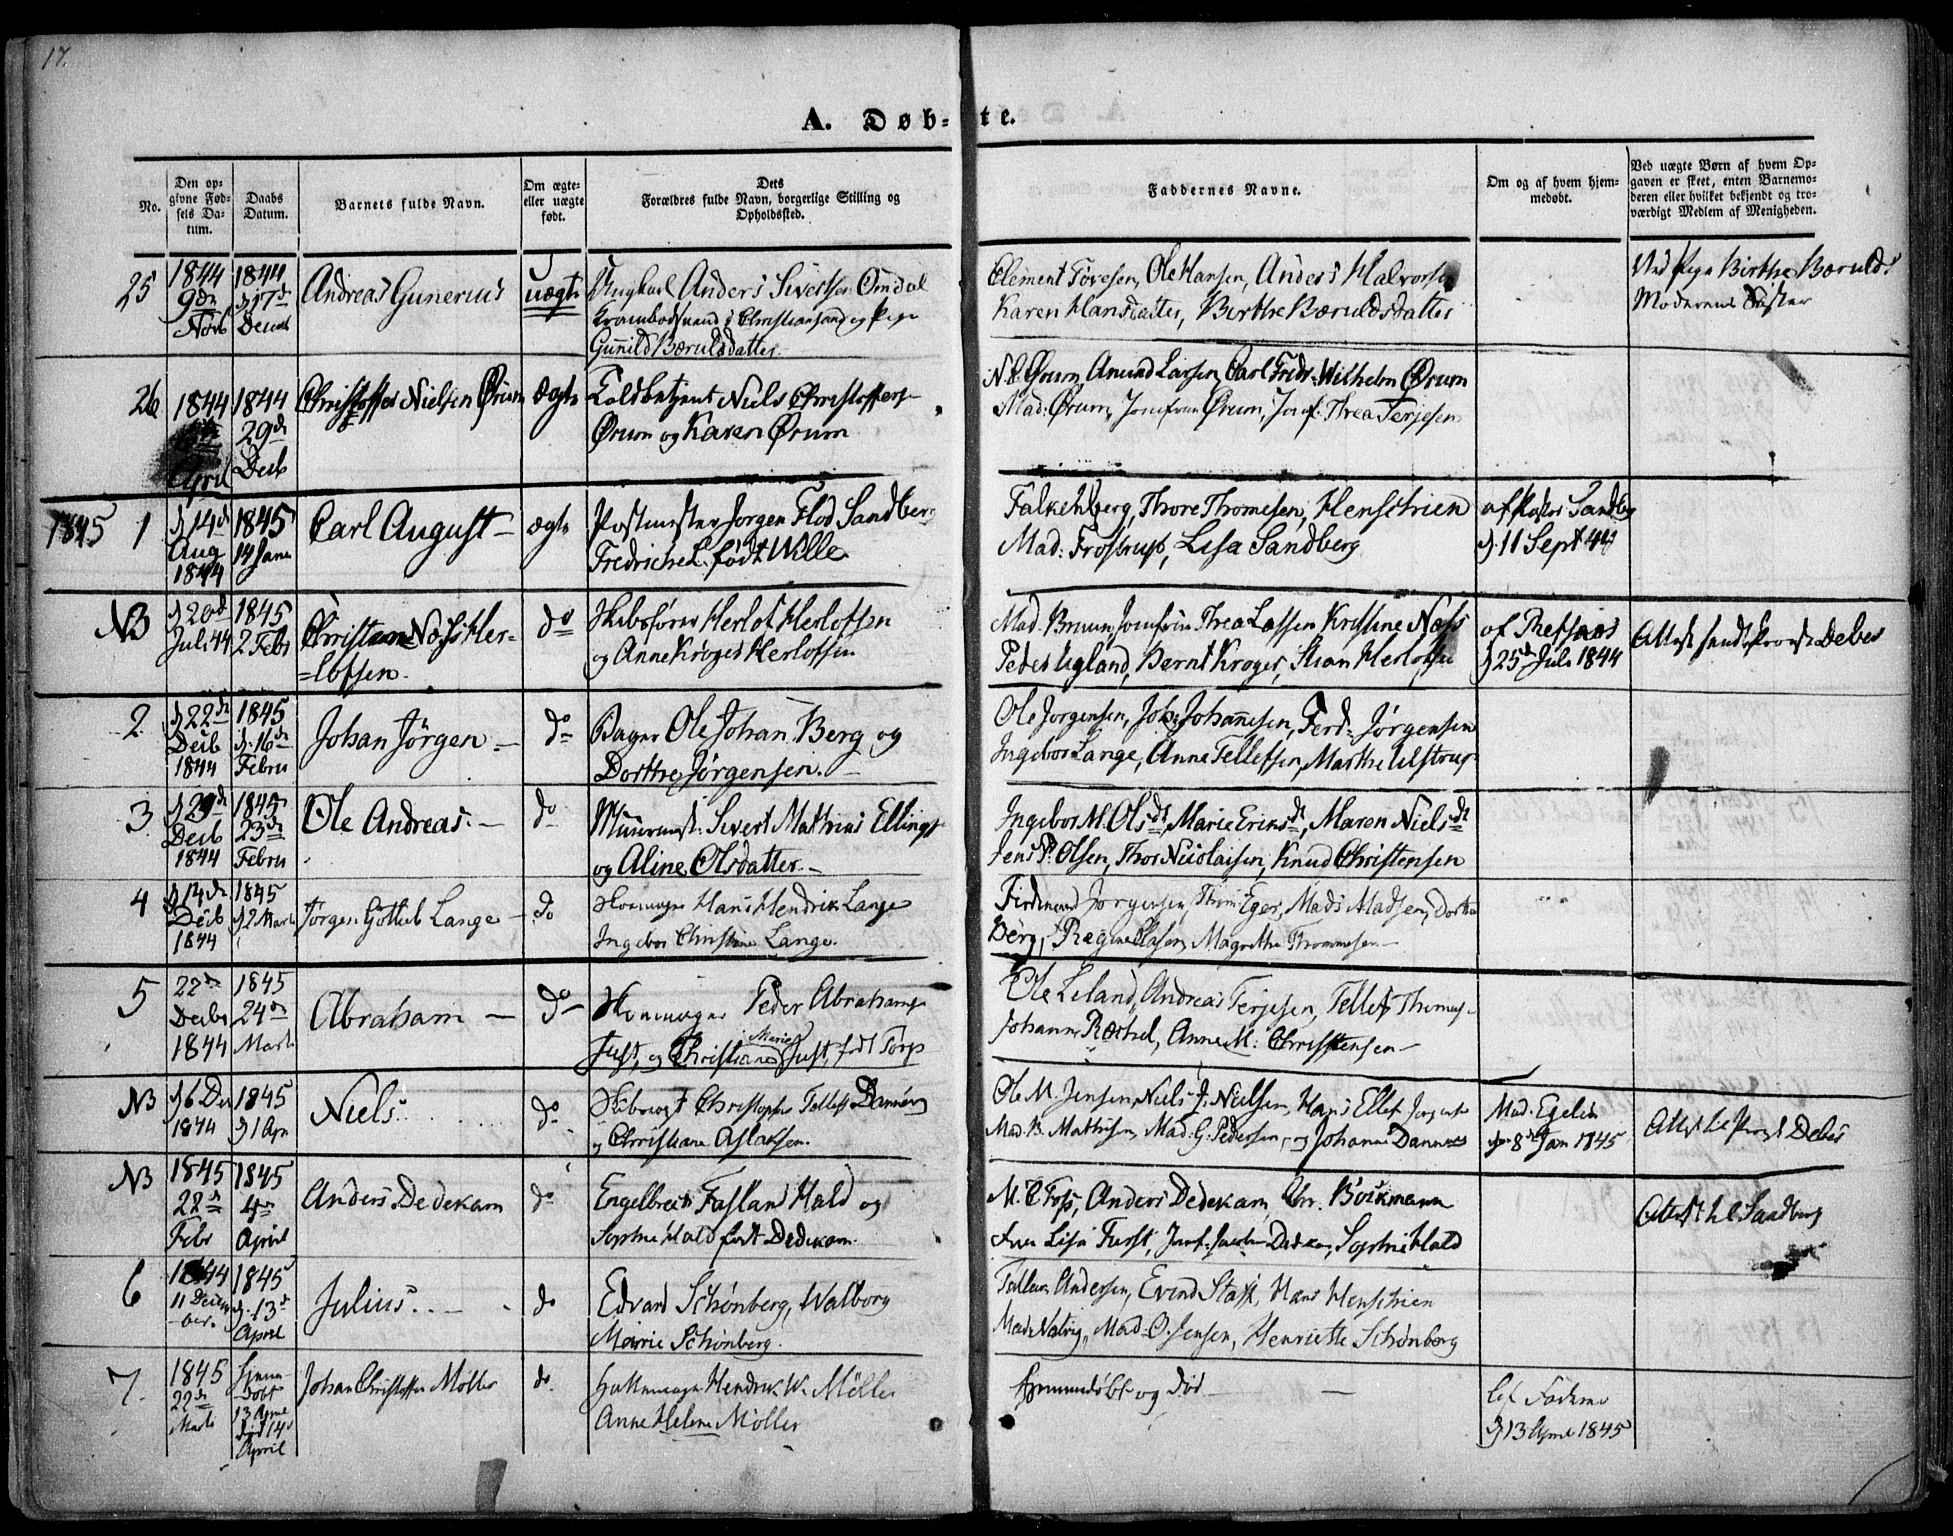 17.
A. Døb-te.
No.
Den op-
givne Fød-
sels Da-
tum.
Daabs
Datum.
Barnets fulde Navn.
Om ægte-
eller uægte
født.
Dets
Forældres fulde Navn, borgerlige Stilling og
Opholdssted.
Faddernes Navne.
Om og af hvem hjem-
medøbt.
Ved uægte Børn af hvem Op-
gaven er skeet, enten Barnemo-
deren eller hvilket bekjendt og tro-
værdigt Medlem af Menigheden.
25
1844
9de
Novb
1844
d. 17de
Decemb
Andreas Gunerius
uægte
Ungkarl Anders Sivertsen Omdal
Krambodsvend i Christiansand og Pige
Gunnild Bærulsdatter
Clement Tovesen, Ole Hansen, Anders Halvorsen
Karen Hansdatter, Birthe Bæruldsdatter
Ved Pige Birthe Bærulds
Moderens Søster
26
1844
April
1844
29de
Decb
Christoffer Nielsen Ørum
ægte
Toldbetjent Niels Christoffers
Ørum og Karen Ørum
N. C. Ørum, Amund Larsen, Carl Fredr. Wilhelm Ørum
Mad: Ørum, Jomfrue Ørum, Jomf: Threa Terjesen
1845
1
d 14de
Aug
1844
1845
14 Janu
Carl August
ægte
Postmester Jorgen Flod Sandberg
Fredriche L. født Wille
Falkenberg, Thore Thomesen, Henschien
Mad: Frostrup, Lisa Sandberg
af Pastor Sandberg
d. 11 Sept 44
NB
d 20de
Juli 44
1845
2 Febr
Christiane Næss Her-
=lofsen.
do
Skibsfører Herlof Herlofsen
og Anne Kroger Herlofsen
Mad. Bruun, Jomfru Threa Lassen, Kristine Næss
Peder Ugland, Bernt Kroger, Stian Herlofsen
d 25de Juli 1844
Debes
2
d 22de
Decb
1844
1845
d. 16de
Febru
Johan Jørgen
do
Bager Ole Johan Berg og
Dorthe Jørgensen.
Ole Jorgensen, Joh: Johannesen, Ferd: Jørgensen
Ingebor Lange, Anne Tellefsen, Marthe Ulstrup
3
d 29de
Decb
1844
1845
23de
Febru
Ole Andreas.
do
Muurmest: Sivert Mathias Ellings
og Aline Olsdatter.
Ingebor M. Olsdt, Marie Eriksdt, Maren Nielsdt
Jens P. Olsen, Thor Nicolaisen, Knud Christensen
4
d 14de
Decb
1844
1845
d 2 Marts
Jørgen Gottlieb Lange
do
Skomager Hans Hendrik Lange
Ingebor Christine Lange.
Ferdinand Jorgensen, Thom: Eger, Mads Madsen, Dorthe
Berg, Ragine Olsen, Magrethe Thommesen
5
22de
Decbr
1844
1845
24de
Marts
Abraham
do
Skomager Peder Abrahams
Marie
Just, og Christiane Just, fdt Torp
Ole Leland, Andreas Terjesen, Tellef Thomas-
Johanne Ræthel, Anne M: Christensen
NB
d 6 Dec
1844
1845
d 1 Apr
Niels.
do
Christopher Tellefs Dannevig
og Christiane Aslaksen.
Ole M. Jensen, Niels J. Nielsen, Hans Ellef Jorgens
Mad. B. Mathisen, Mad: G. Pedersen, og Johanne Dannevig
Mad. Egelie
8de Jan 1845
Debes
NB
1845
22de
Febr
1845
4de
April
Anders Dedekam
do
Engelbreth Fasland Hald og
Sophie Hald født Dedekam.
M. C. Foss, Anders Dedekam, Chr. Bockmann
Lisa Furst, Jomf: Dedekam, Sophie Hald
Sandberg
6
1844
11 Decem-
ber.
1845
d. 13de
April
Julius.
do
Edvard Schønberg, Walborg
Marie Schønberg.
Tellev Andersen, Evend Stass, Hans Henschien
Mad: Natvig, Mad: O. Jensen, Henriette Schønberg
7.
1845
22de
Marts
hjem-
døbt
13 April
død 14de
April
Johan Christoffer Møller
do.
Hattemager Hendrik W. Møller
Anne Helene Møller
hjemmedøbt og død
af Faderen
d 13 April 1845